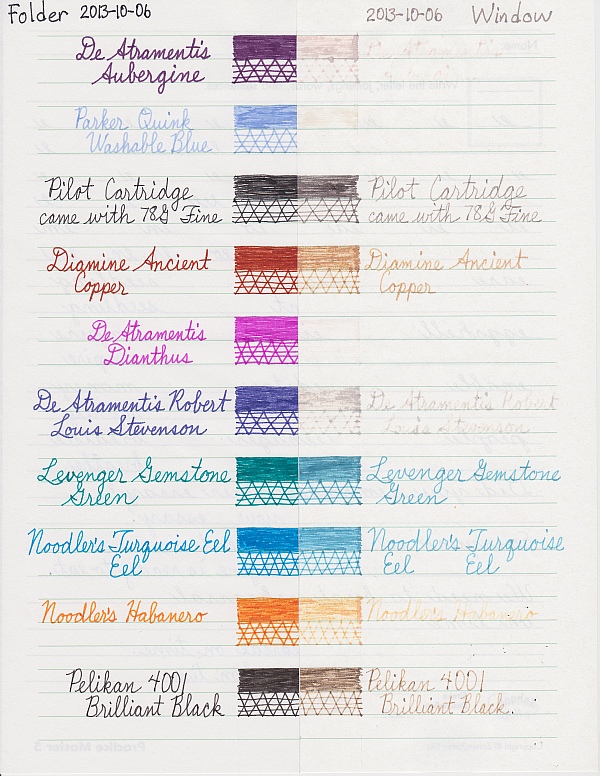 Folder 2013-10-06
2013-10-06 Window
De Atramentis
Aubergine
Parker Quink
Washable Blue
Pilot Cartridge
came with 78G Fine
Pilot Cartridge
came with 78G Fine
Diamine Ancient
Copper
Diamine Ancient
Copper
De Atramentis
Dianthus
De Atramentis Robert
Louis Stevenson
De Atramentis Robert
Louis Stevenson
Levenger Gemstone
Green
Levenger Gemstone
Green
Noodler's Turquoise Eel
Eel
Noodler's Turquoise
Eel Eel
Noodler's Habanero
Noodler's Habanero
Pelikan 4001
Brilliant Black
Pelikan 4001
Brilliant Black